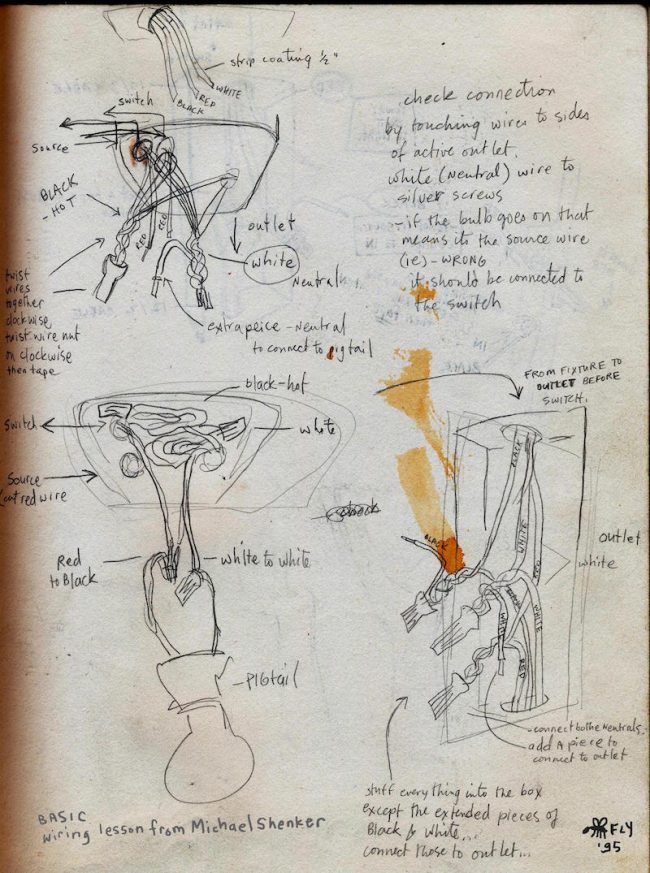 strip coating ½"
WHITE
RED
BLACK
switch
source
BLACK
- HOT
RED
RED
outlet
white
Neutral
twist
wires
together
clockwise
twist wire nut
on clockwise
then tape
extra peice - Neutral
to connect to pigtail
check connection
by touching wires to sides
of active outlet.
white (Neutral) wire to
silver screws
- if the bulb goes on that
means its the source wire
(ie) - WRONG
it should be connected to
the switch
black-hot
switch
white
source
(cut red wire
Red
to Black
white to white
PIGtail
FROM FIXTURE TO
OUTLET BEFORE
SWITCH.
BLACK
WHITE
RED
BLACK
outlet
white
BLACK
WHITE
WHITE
RED
- connect both Neutrals -
add A piece to
connect to outlet
stuff everything into the box
except the extended pieces of
Black & White...
connect those to outlet...
BASIC
wiring lesson from Michael Shenker
FLY
'95